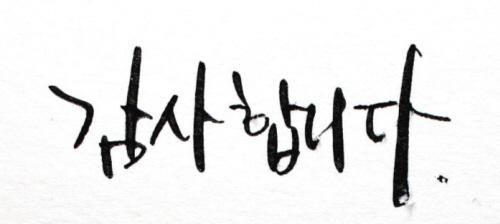 감사합니다.